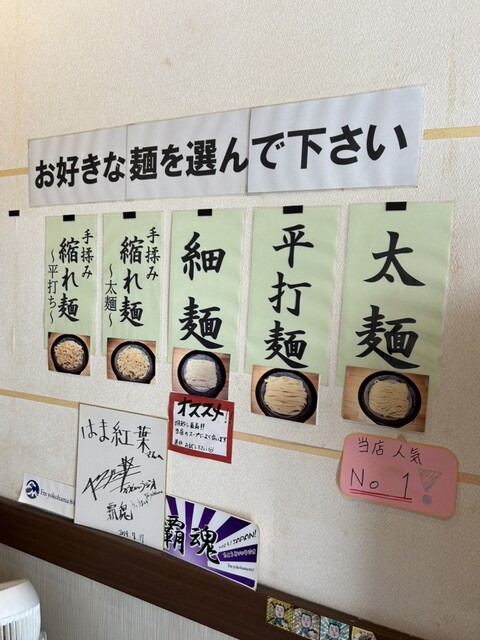 お好きな麺を選んで下さい
太麺
平打麺
細麺
手揉み
縮れ麺
～太麺～
手揉み
縮れ麺
～平打ち～
オススメ!
当店人気
No 1
はま紅葉
さん江
覇魂
覇魂
JAPAN!
Fm yokohama